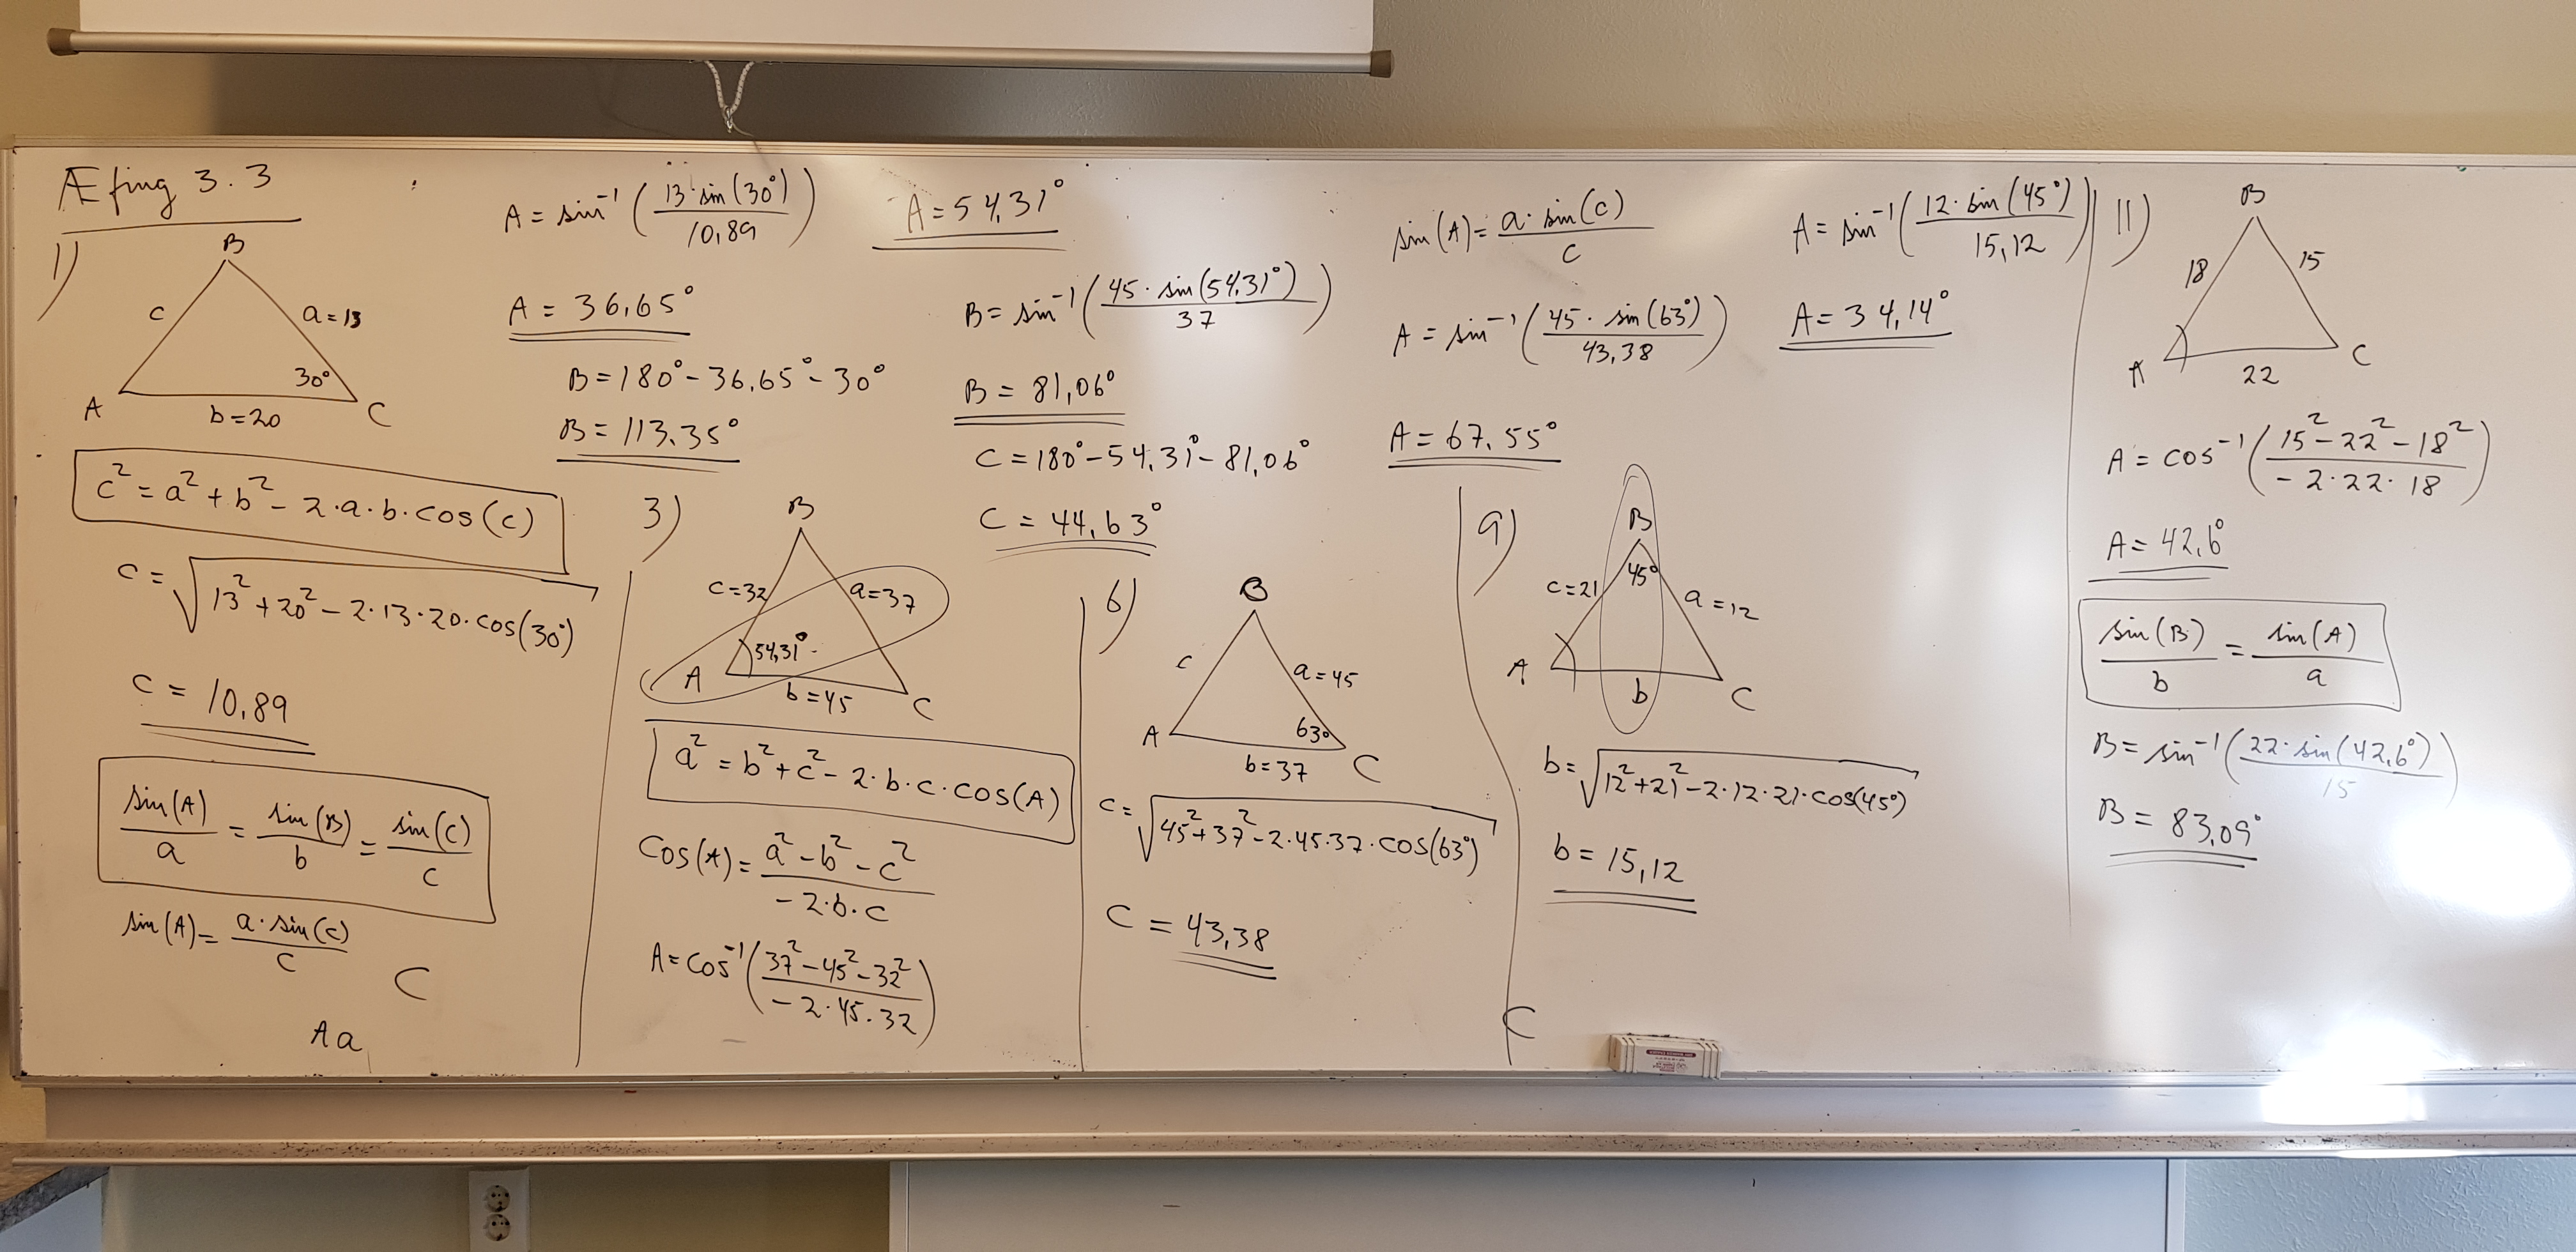 Æfing 3.3
1)
B
c
a=13
30°
A
b=20
C
c² = a² + b² - 2·a·b·cos(c)
c = √(13² + 20² - 2·13·20·cos(30°))
c = 10,89
sin(A)/a = sin(B)/b = sin(C)/c
sin(A) = a·sin(c)/c
C
A a
A = sin⁻¹(13·sin(30°)/10,89)
A = 36,65°
B = 180° - 36,65° - 30°
B = 113,35°
3)
B
c=32
a=37
54,31°
A
b=45
C
a² = b² + c² - 2·b·c·cos(A)
Cos(A) = a² - b² - c²/-2·b·c
A = cos⁻¹(37² - 45² - 32²/-2·45·32)
A = 54,31°
B = sin⁻¹(45·sin(54,31°)/37)
B = 81,06°
C = 180° - 54,31° - 81,06°
C = 44,63°
6)
B
c
a=45
63°
A
b=37
C
c = √(45² + 37² - 2·45·37·cos(63°))
C = 43,38
sin(A) = a·sin(c)/c
A = sin⁻¹(45·sin(63°)/43,38)
A = 67,55°
9)
B
45°
c=21
a=12
A
b
C
b = √(12² + 21² - 2·12·21·cos(45°))
b = 15,12
C
A = sin⁻¹(12·sin(45°)/15,12)
A = 34,14°
11)
B
18
15
A
22
C
A = cos⁻¹(15² - 22² - 18²/-2·22·18)
A = 42,6°
sin(B)/b = sin(A)/a
B = sin⁻¹(22·sin(42,6°)/15)
B = 83,09°